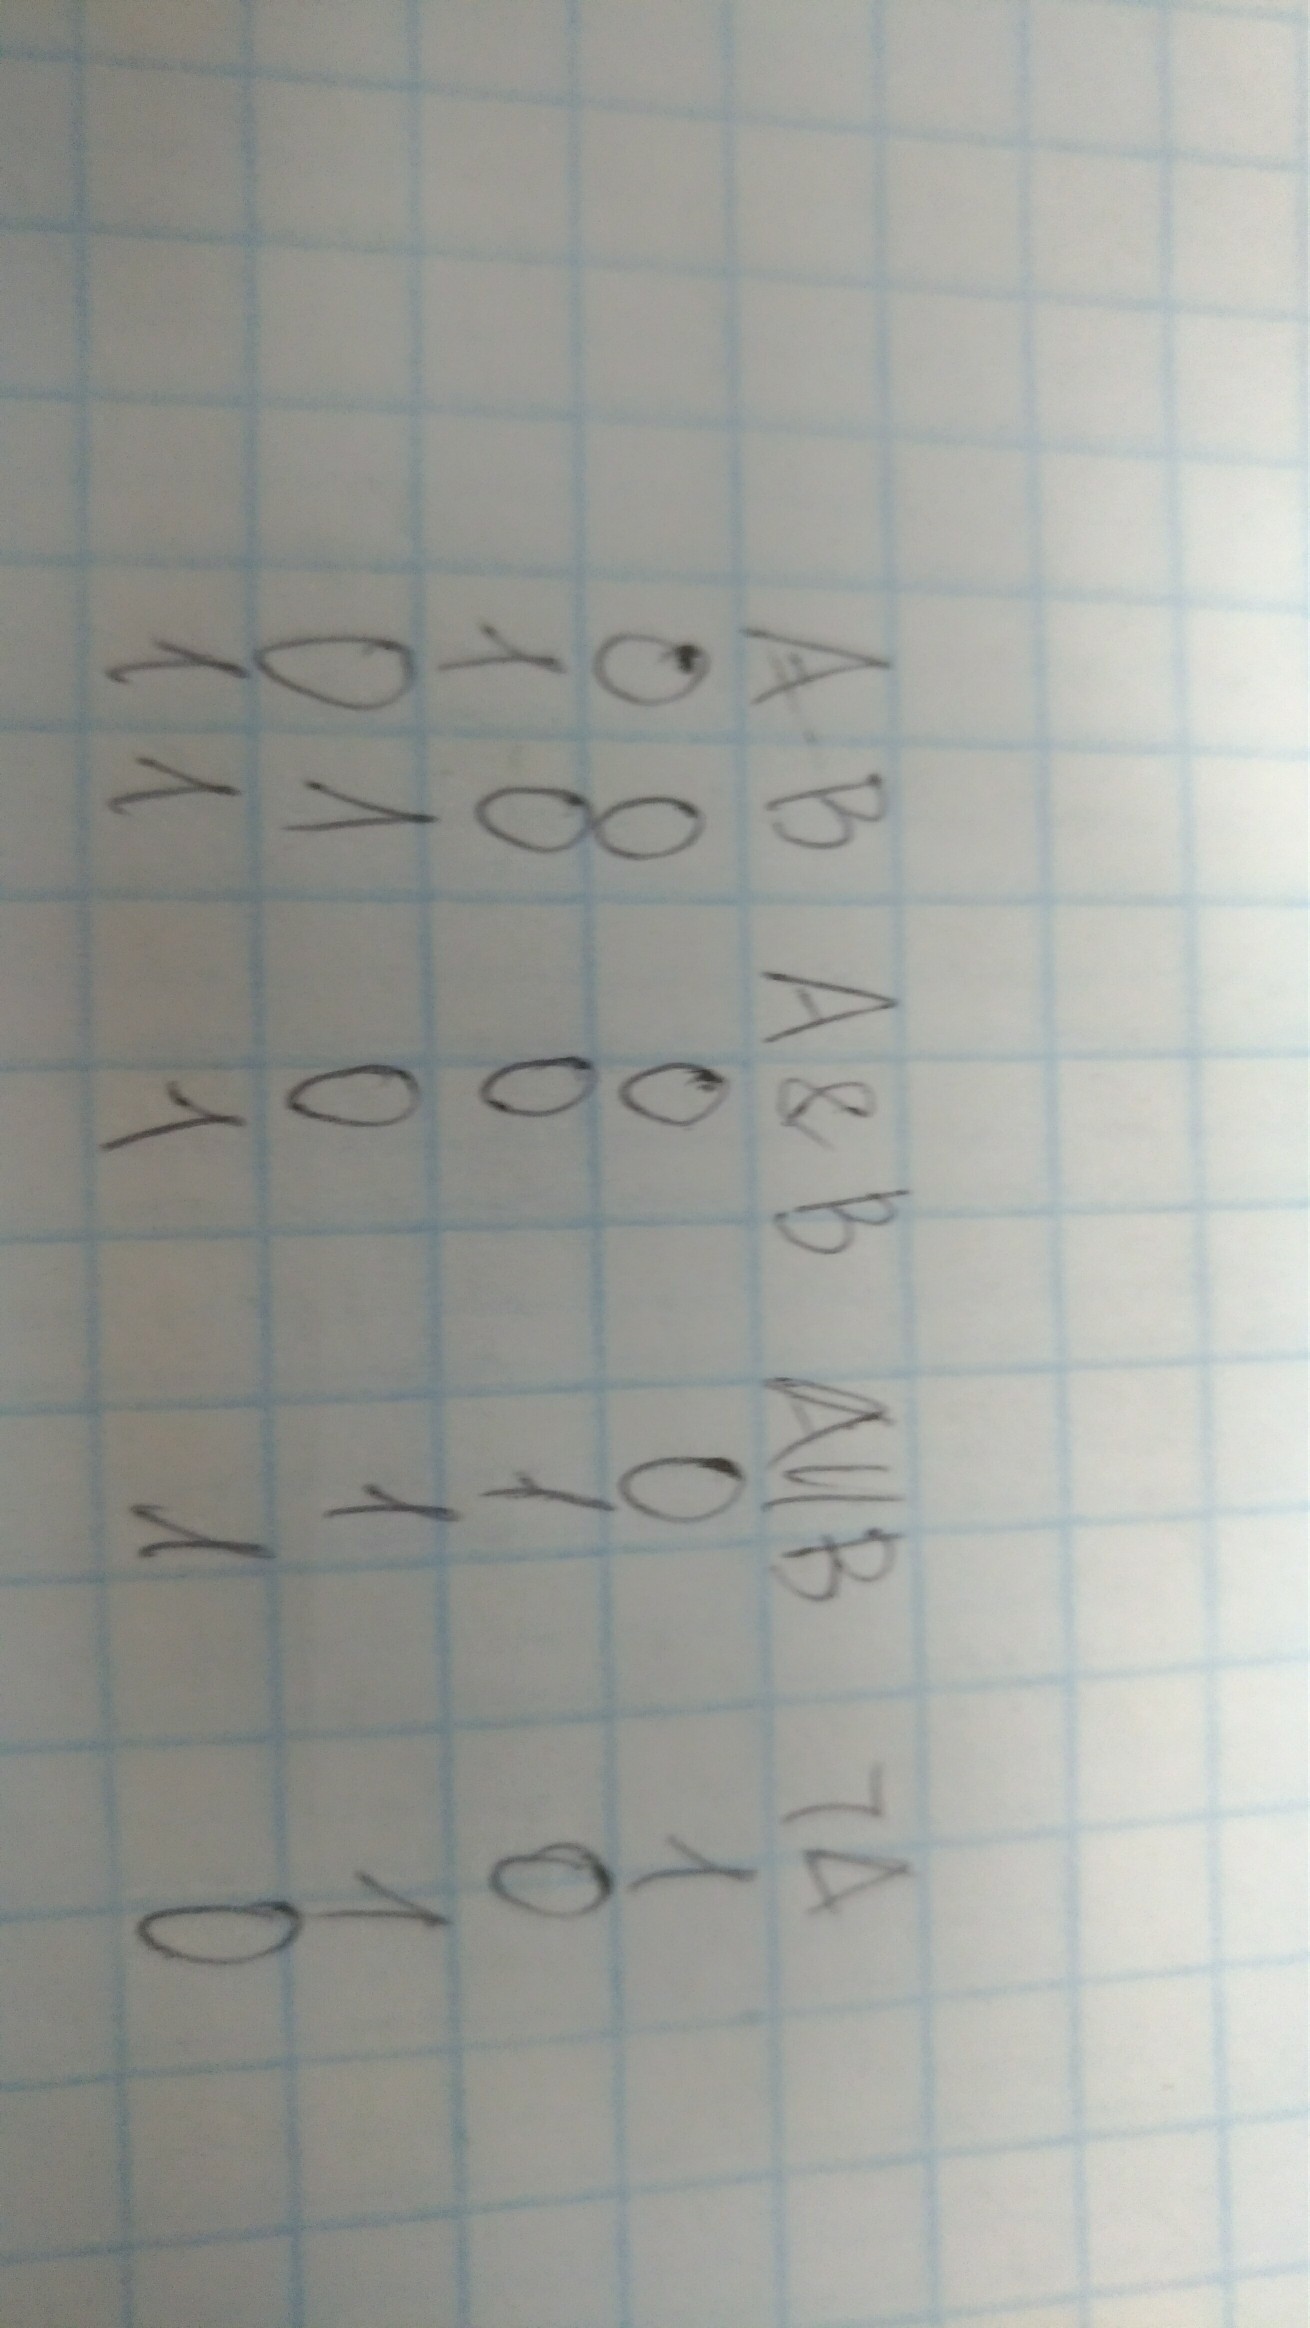 A B A & B A || B ¬A
0 0 0 0 1
1 0 0 1 0
0 1 0 1 1
1 1 1 1 0